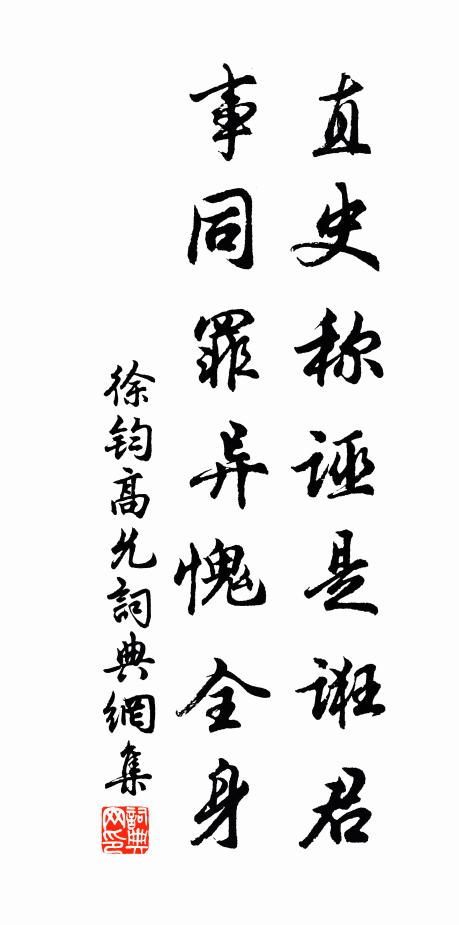 直史称诬是诳君
事同罪异愧全身
徐钧高允詞典網集
詞典网印